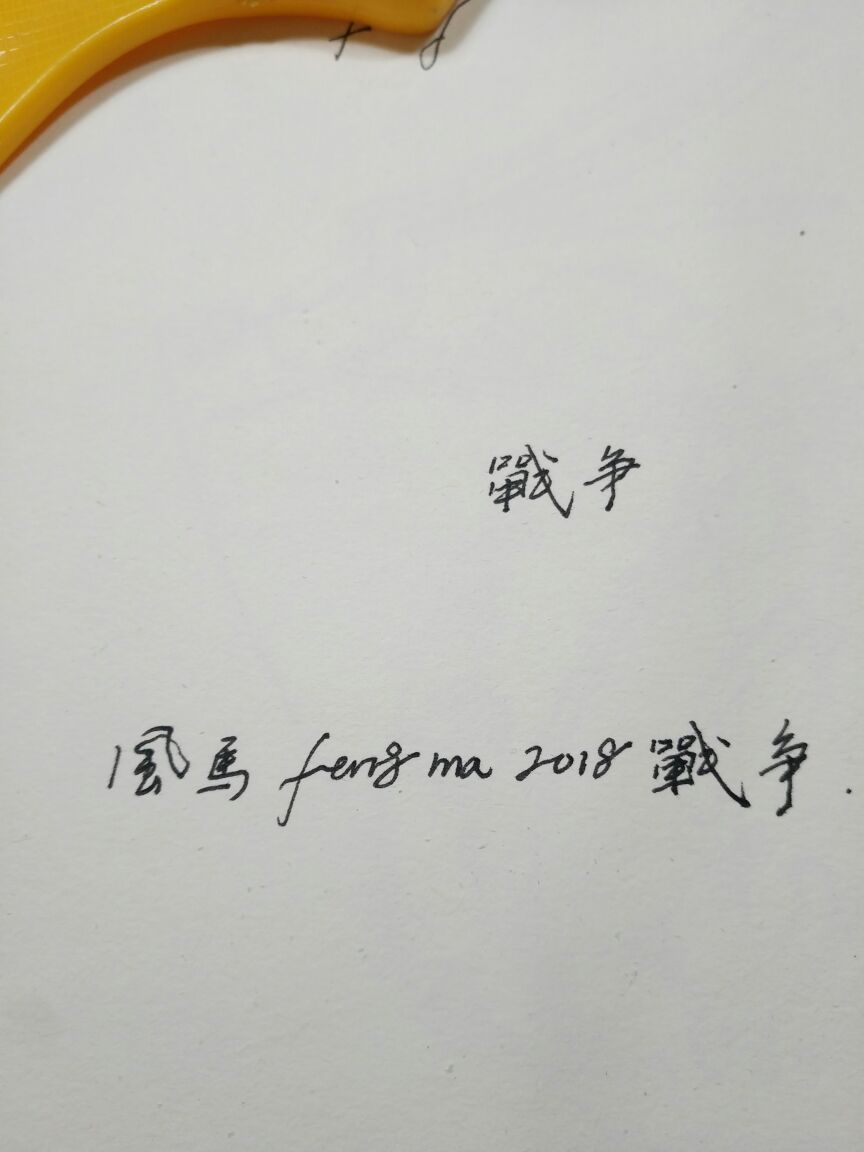 戰争
風馬 fengma 2018 戰争.